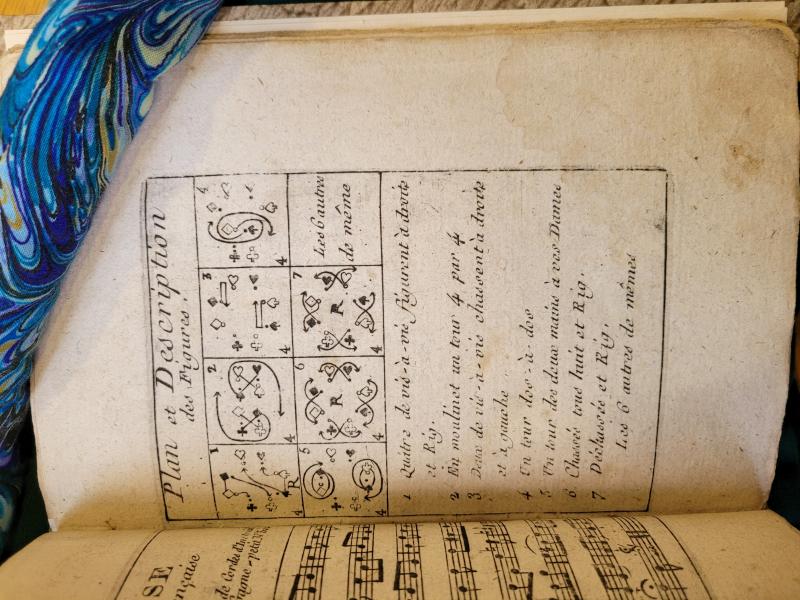 Plan et Description
des Figures.
1
2
3
4
R
4
4
4
4
5
6
7
Les 6 autres
de même
R
R
4
4
4
1 Quatre de vis-à-vis figurent à droite
et Rig.
2 En moulinet un tour 4 par 4
3 Deux de vis-à-vis chassent à droite
et à gauche
4 Un tour dos-à-dos
5 Un tour des deux mains à vos Dames
6 Chassés tous huit et Rig.
7 Déchassés et Rig.
Les 6 autres de mêmes
SE
nçaise